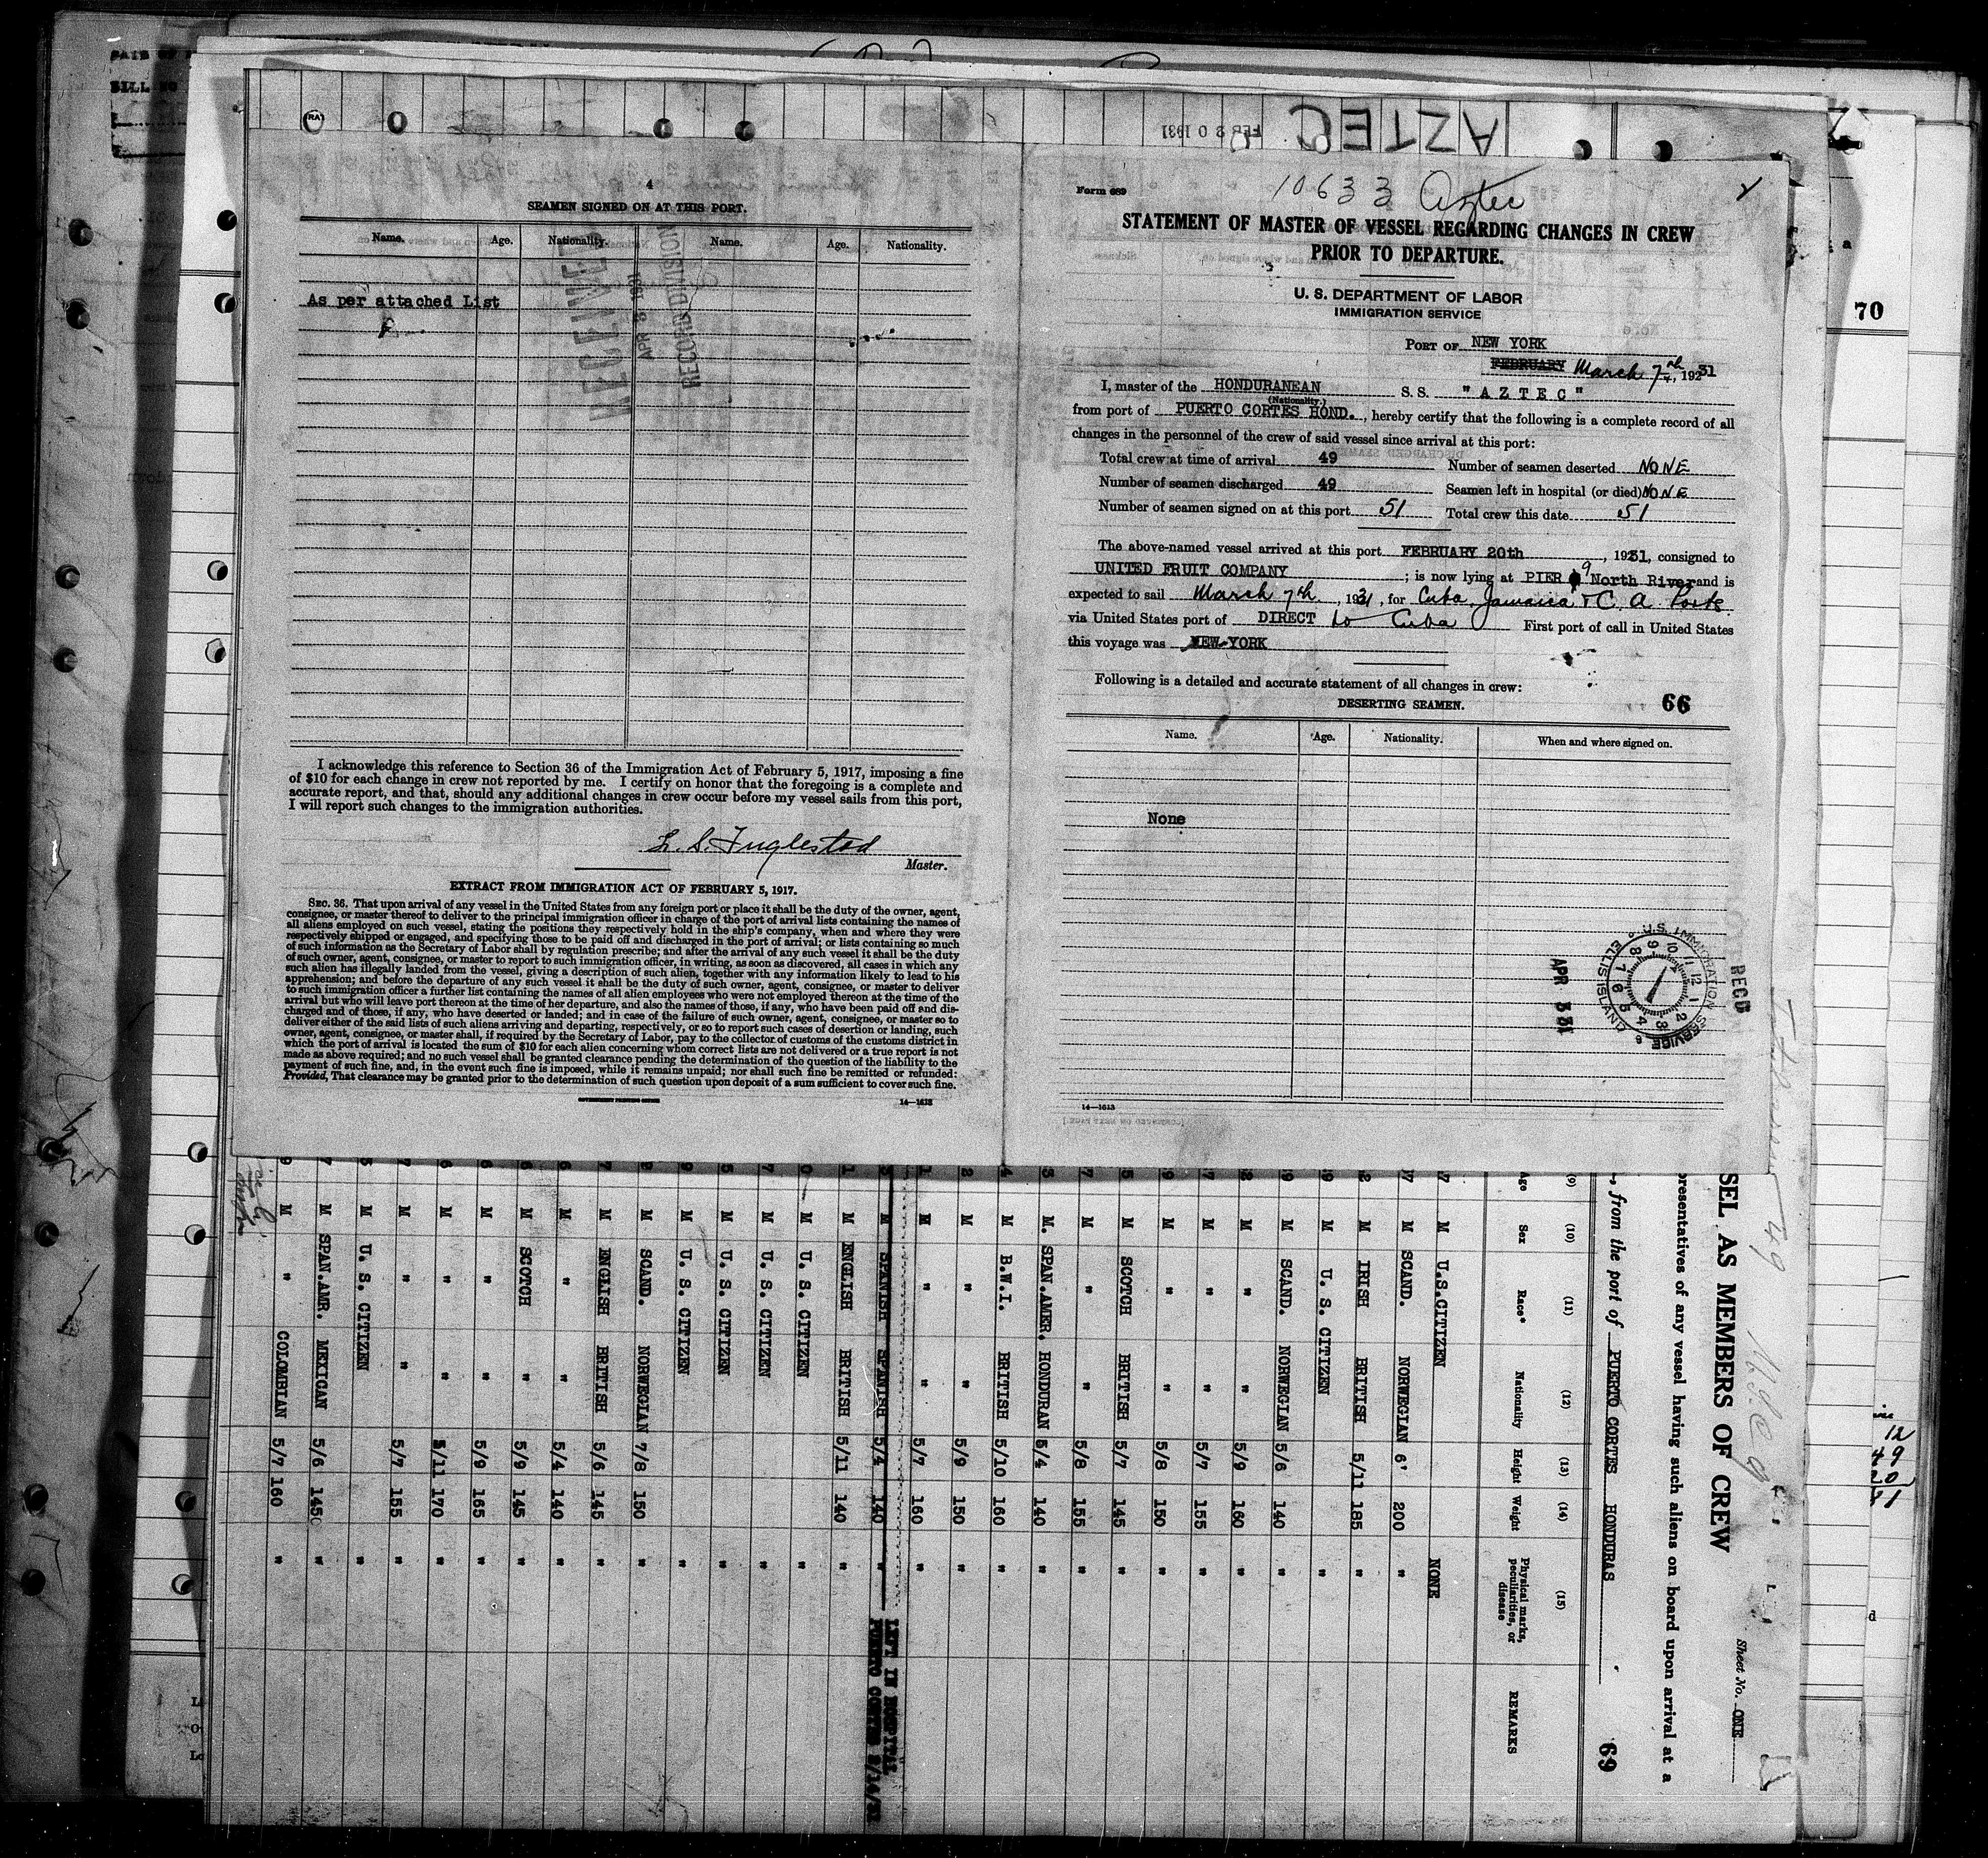 AZTEC
FEB 20 1931
4
SEAMEN SIGNED ON AT THIS PORT.
Name. Age. Nationality. Name. Age. Nationality.
As per attached List
RECEIVED
APR 8 1931
RECORD DIVISION
I acknowledge this reference to Section 36 of the Immigration Act of February 5, 1917, imposing a fine
of $10 for each change in crew not reported by me. I certify on honor that the foregoing is a complete and
accurate report, and that, should any additional changes in crew occur before my vessel sails from this port,
I will report such changes to the immigration authorities.
Master.
EXTRACT FROM IMMIGRATION ACT OF FEBRUARY 5, 1917.
SEC. 36. That upon arrival of any vessel in the United States from any foreign port or place it shall be the duty of the owner, agent,
consignee, or master thereof to deliver to the principal immigration officer in charge of the port of arrival lists containing the names of
all aliens employed on such vessel, stating the positions they respectively hold in the ship's company, when and where they were
respectively shipped or engaged, and specifying those to be paid off and discharged in the port of arrival; or lists containing so much
of such information as the Secretary of Labor shall by regulation prescribe; and after the arrival of any such vessel it shall be the duty
of such owner, agent, consignee, or master to report to such immigration officer, in writing, as soon as discovered, all cases in which any
such alien has illegally landed from the vessel, giving a description of such alien, together with any information likely to lead to his
apprehension; and before the departure of any such vessel it shall be the duty of such owner, agent, consignee, or master to deliver
to such immigration officer a further list containing the names of all alien employees who were not employed thereon at the time of the
arrival but who will leave port thereon at the time of her departure, and also the names of those, if any, who have been paid off and dis-
charged and of those, if any, who have deserted or landed; and in case of the failure of such owner, agent, consignee, or master so to
deliver either of the said lists of such aliens arriving and departing, respectively, or so to report such cases of desertion or landing, such
owner, agent, consignee, or master shall, if required by the Secretary of Labor, pay to the collector of customs of the customs district in
which the port of arrival is located the sum of $10 for each alien concerning whom correct lists are not delivered or a true report is not
made as above required; and no such vessel shall be granted clearance pending the determination of the question of the liability to the
payment of such fine, and, in the event such fine is imposed, while it remains unpaid; nor shall such fine be remitted or refunded:
Provided, That clearance may be granted prior to the determination of such question upon deposit of a sum sufficient to cover such fine.
GOVERNMENT PRINTING OFFICE 14—1613
Form 689
10633 Aztec
STATEMENT OF MASTER OF VESSEL REGARDING CHANGES IN CREW
PRIOR TO DEPARTURE.
U. S. DEPARTMENT OF LABOR
IMMIGRATION SERVICE
PORT OF NEW YORK
FEBRUARY March 7th, 19231
I, master of the HONDURANEAN S. S. "AZTEC"
(Nationality.)
from port of PUERTO CORTES HOND., hereby certify that the following is a complete record of all
changes in the personnel of the crew of said vessel since arrival at this port:
Total crew at time of arrival 49 Number of seamen deserted NONE
Number of seamen discharged 49 Seamen left in hospital (or died) NONE
Number of seamen signed on at this port 51 Total crew this date 51
The above-named vessel arrived at this port FEBRUARY 20th, 1931, consigned to
UNITED FRUIT COMPANY; is now lying at PIER 9 North River and is
expected to sail March 7th, 1931, for Cuba, Jamaica & C. A. Ports
via United States port of DIRECT to Cuba First port of call in United States
this voyage was NEW YORK
Following is a detailed and accurate statement of all changes in crew:
66
DESERTING SEAMEN.
Name. Age. Nationality. When and where signed on.
None
14—1613
REC'D
U.S. IMMIGRATION SERVICE
ELLIS ISLAND
APR 3 31
70
SEL AS MEMBERS OF CREW
Sheet No. ONE
presentatives of any vessel having such aliens on board upon arrival at a
, from the port of PUERTO CORTES HONDURAS
69
(9) (10) (11) (12) (13) (14) (15)
Age Sex Race* Nationality Height Weight Physical marks, peculiarities, or disease REMARKS
7 M U.S.CITIZEN NONE
7 M SCAND. NORWEGIAN 6' 200 "
2 M IRISH BRITISH 5/11 185 "
9 M U. S. CITIZEN "
9 M SCAND. NORWEGIAN 5/6 140 "
M " " 5/9 160 "
7 M " " 5/7 155 "
9 M " " 5/8 150 "
5 M SCOTCH BRITISH 5/7 145 "
7 M " " 5/8 155 "
3 M. SPAN.AMER. HONDURAN 5/4 140 "
4 M B.W.I. BRITISH 5/10 160 "
2 M " " 5/9 150 "
1 M " " 5/7 160 "
M SPANISH SPANISH 5/4 140 " LEFT IN HOSPITAL
1 M ENGLISH BRITISH 5/11 140 "
0 M U. S. CITIZEN "
7 M U. S. CITIZEN "
5 M U. S. CITIZEN "
9 M U. S. CITIZEN "
9 M SCAND. NORWEGIAN 7/8 150 "
7 M ENGLISH BRITISH 5/6 145 "
6 M " " 5/4 140 "
M SCOTCH " 5/9 145 "
6 M " " 5/9 165 "
6 M " " 5/11 170 "
7 M " " 5/7 155 "
5 M U. S. CITIZEN "
7 M SPAN.AMR. MEXICAN 5/6 145 "
9 M " COLOMBIAN 5/7 160 "
12
49
20